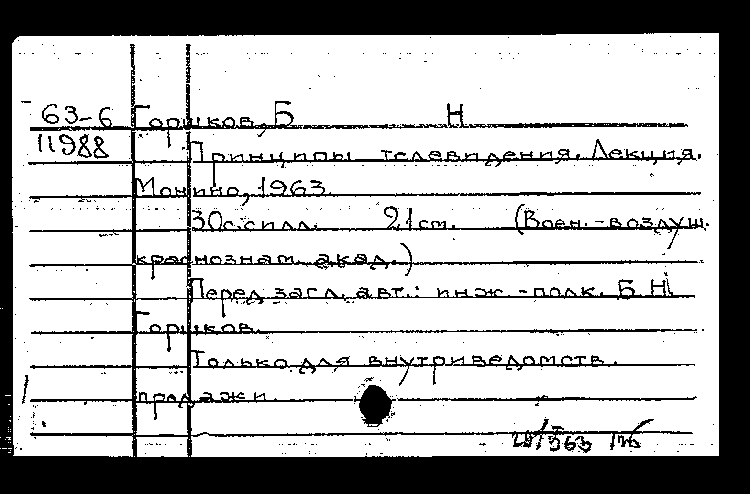 63-6 Горшков, Б Н
11988 Принципы телевидения. Лекция.
Монино, 1963.
30с.силл. 21см. (Воен.-воздуш.
краснознам. акад.)
Перед загл. авт.: инж.-полк. Б. Н.
Горшков.
Только для внутриведомств.
продажи.